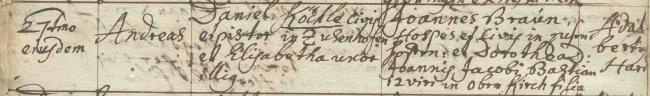 27tmo
ejusdem
Andreas
Daniel Köckle civis
et pistor in Zusenhofen
et Elisabetha uxor
illig.
Joannes Braun,
Hospes et civis in Zusen
hofen: et Dorothea
Joannis Jacobi Bastian
12 viri in Ober Kirch filia